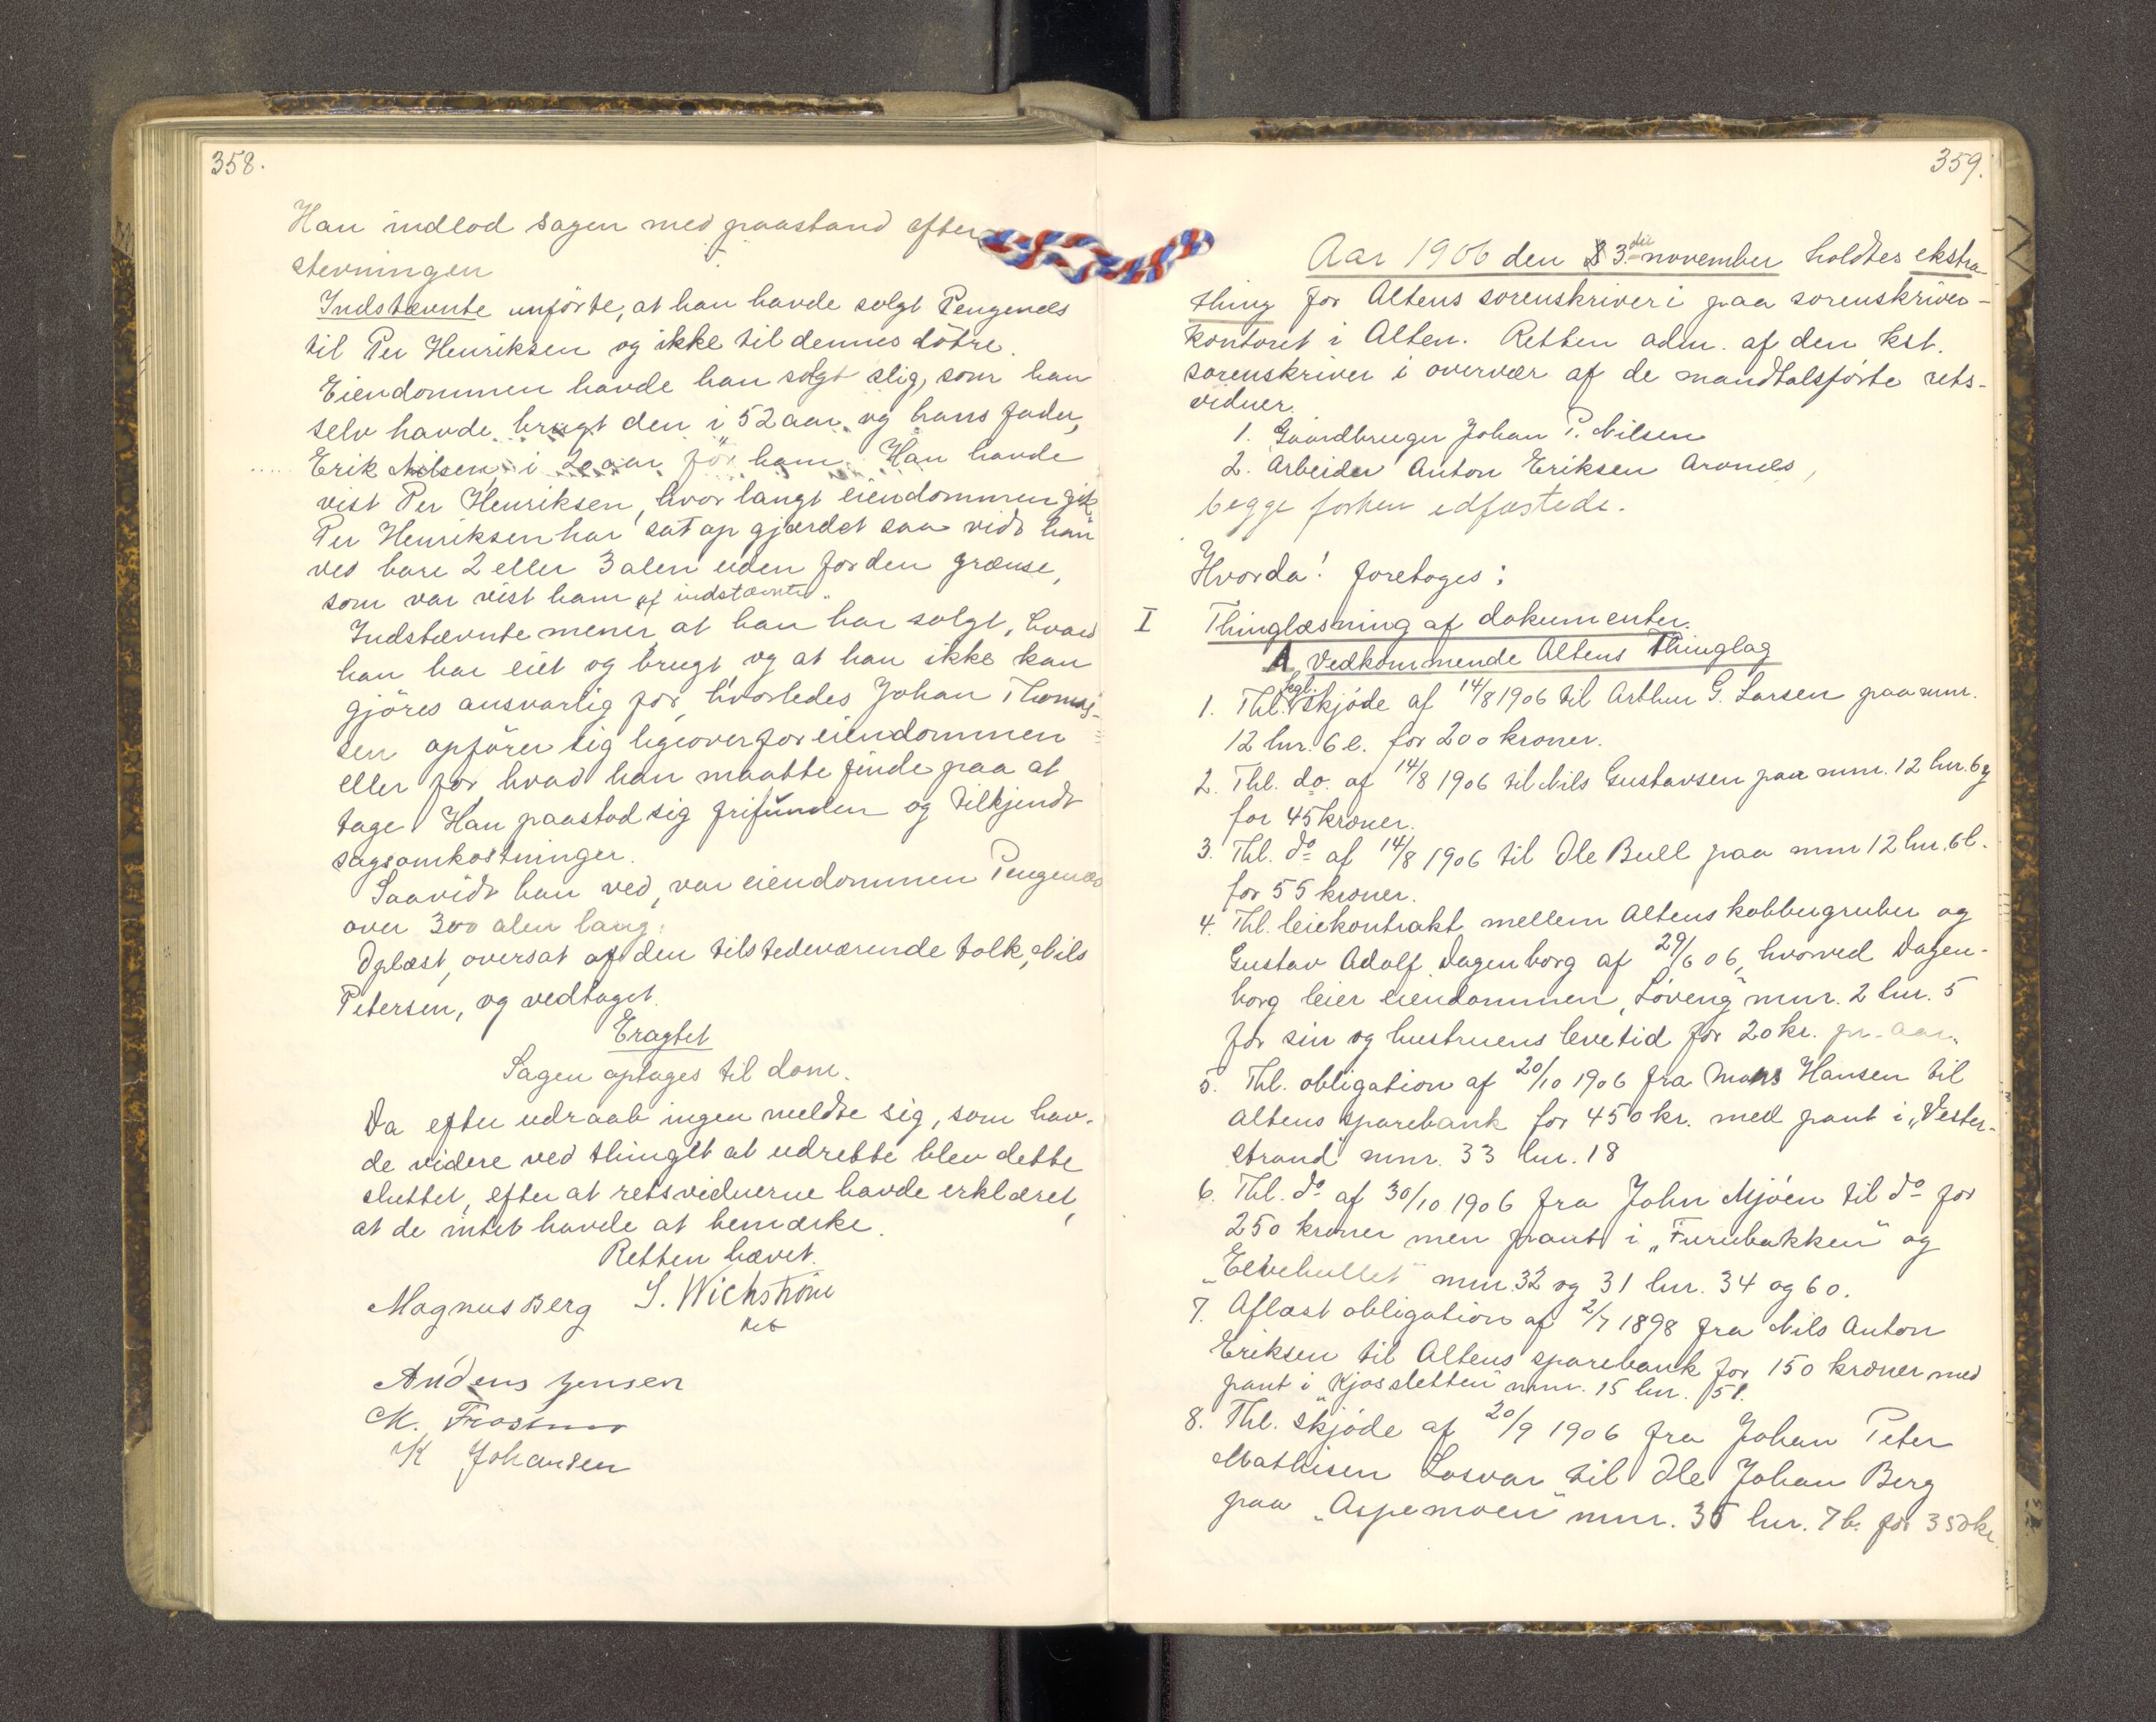 358.
Han indlod sagen med paastand efter
stevningen
Indstævnte anförte, at han havde solgt Pengenæs
til Per Henriksen og ikke til dennes dötre.
Eiendommen havde han solgt slig, som han
selv havde brugt den i 52 aar og hans fader,
Erik Nilsen, i 20 aar för ham. Han havde
vist Per Henriksen, hvor langt eiendommen gik
Per Henriksen har sat op gjærdet saa vidt han
ved bare 2 eller 3 alen uden for den grænse,
som var vist ham af indstævnte.
Indstævnte mener, at han har solgt, hvad
han har eiet og brugt og at han ikke kan
gjöres ansvarlig for, hvorledes Johan Thomas-
sen opförer sig ligeoverfor eiendommen
eller for hvad han maatte finde paa at
tage. Han paastod sig frifunden og tilkjendt
sagsomkostninger.
Saavidt han ved, var eiendommen Pengenæs
over 300 alen lang.
Oplæst, oversat af den tilstedeværende tolk, Nils
Petersen, og vedtaget.
Eragtet
Sagen optages til dom.
Da efter udraab ingen meldte sig, som hav-
de videre ved thinget at udrette blev dette
sluttet, efter at retsvidnerne havde erklæret,
at de intet havde at bemærke.
Retten hævet.
Magnus Berg S. Wichström
kst
Anders Jensen
M.
K Johansen
359.
Aar 1906 den 3.die november holdtes ekstra-
thing for Altens sorenskriveri paa sorenskriver-
kontoret i Alten. Retten adm. af den kst.
sorenskriver i overvær af de mandtalsförte rets-
vidner.
1. Gaardbruger Johan P. Nilsen
2. Arbeider Anton Eriksen Aronnes,
begge forhen edfæstede.
Hvorda! foretoges:
I Thinglæsning af dokumenter.
A, Vedkommende Altens Thinglag
1. Thl. kgl. skjöde af 14/8 1906 til Arthur G. Larsen paa mnr.
12 lnr. 6 e. for 200 kroner.
2. Thl. do. af 14/8 1906 til Nils Gustavsen paa mnr. 12 lnr. 6 g
for 45 kroner.
3. Thl. do af 14/8 1906 til Ole Bull paa mnr 12 lnr. 6 l.
for 55 kroner.
4. Thl. leiekontrakt mellem Altens kobbergruber og
Gustav Adolf Dagenborg af 29/6 06, hvorved Dagen-
borg leier eiendommen, "Löveng" mnr. 2 lnr. 5
for sin og hustruens levetid for 20 kr. pr. aar.
5. Thl. obligation af 20/10 1906 fra Mons Hansen til
Altens sparebank for 450 kr. med pant i „Vester-
strand" mnr. 33 lnr. 18
6. Thl. do af 30/10 1906 fra John Mjöen til do for
250 kroner men pant i „Furubakken" og
„Elvehullet" mnr. 32 og 31 lnr. 34 og 60.
7. Aflæst obligation af 2/7 1898 fra Nils Anton
Eriksen til Altens sparebank for 150 kroner med
pant i „Kjosletten" mnr. 15 lnr. 51.
8. Thl. skjöde af 20/9 1906 fra Johan Peter
Mathisen Losvar til Ole Johan Berg
paa „Aspemoen" mnr. 35 lnr. 7 b. for 350 kr.